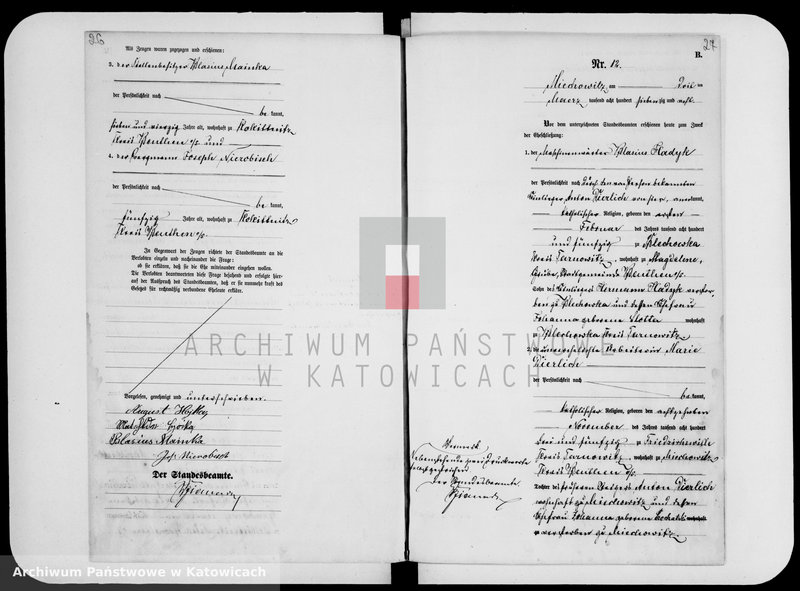 26
Als Zeugen waren zugezogen und erschienen:
3. der Stellenbesitzer Blasius Mainka
der Persönlichkeit nach
be kannt,
sieben und vierzig Jahre alt, wohnhaft zu Rokittnitz
Kreis Beuthen o/s. und
4. der Bergmann Joseph Nierobisch
der Persönlichkeit nach
be kannt,
fünfzig Jahre alt, wohnhaft zu Rokittnitz
Kreis Beuthen o/s.
In Gegenwart der Zeugen richtete der Standesbeamte an die
Verlobten einzeln und nacheinander die Frage:
ob sie erklären, daß sie die Ehe miteinander eingehen wollen.
Die Verlobten beantworteten diese Frage bejahend und erfolgte hier-
auf der Ausspruch des Standesbeamten, daß er sie nunmehr kraft des
Gesetzes für rechtmäßig verbundene Eheleute erkläre.
Vorgelesen, genehmigt und unterschrieben.
August
Blasius Mainka
Jos. Nierobisch
Der Standesbeamte.
27
B.
Nr. 12.
Miechowitz am
März tausend acht hundert siebenzig und acht.
Vor dem unterzeichneten Standesbeamten erschienen heute zum Zweck
der Eheschließung:
1. der Maschinenwärter Blasius Hadyk
der Persönlichkeit nach durch den von Person bekannten
Häusler Anton Pierlich von hier, anerkannt,
katholischer Religion, geboren den ersten
Februar des Jahres tausend acht hundert
und fünfzig zu Blechowka
Kreis Tarnowitz, wohnhaft zu Magdalene,
Grube, Beuthen o/s.
Sohn des Häuslers Hermann Hadyk verstor-
ben zu Blechowka und dessen Ehefrau
Johanna geborene Slotta wohnhaft
zu Blechowka Kreis Tarnowitz
2. die unverehelichte Arbeiterin Marie
Pierlich
der Persönlichkeit nach
be kannt,
katholischer Religion, geboren den achtzehnten
November des Jahres tausend acht hundert
drei und fünfzig zu Friedrichswille
Kreis Tarnowitz, wohnhaft zu Miechowitz
Kreis Beuthen o/s.
Tochter des Häuslers Anton Pierlich
wohnhaft zu Miechowitz und dessen
Ehefrau Johanna geborene wohnhaft
verstorben zu Miechowitz
Vermerk
Nebenstehende zwei Druckworte
gestrichen
Der Standesbeamte
ARCHIWUM PAŃSTWOWE
W KATOWICACH
Archiwum Państwowe w Katowicach